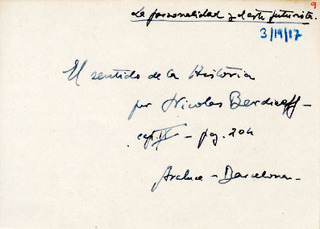 9
La personalidad y el arte futurista.
3/19/17
El sentido de la Historia
por Nicolas Berdiaeff -
cap. - pag. 204
Araluce - Barcelona -